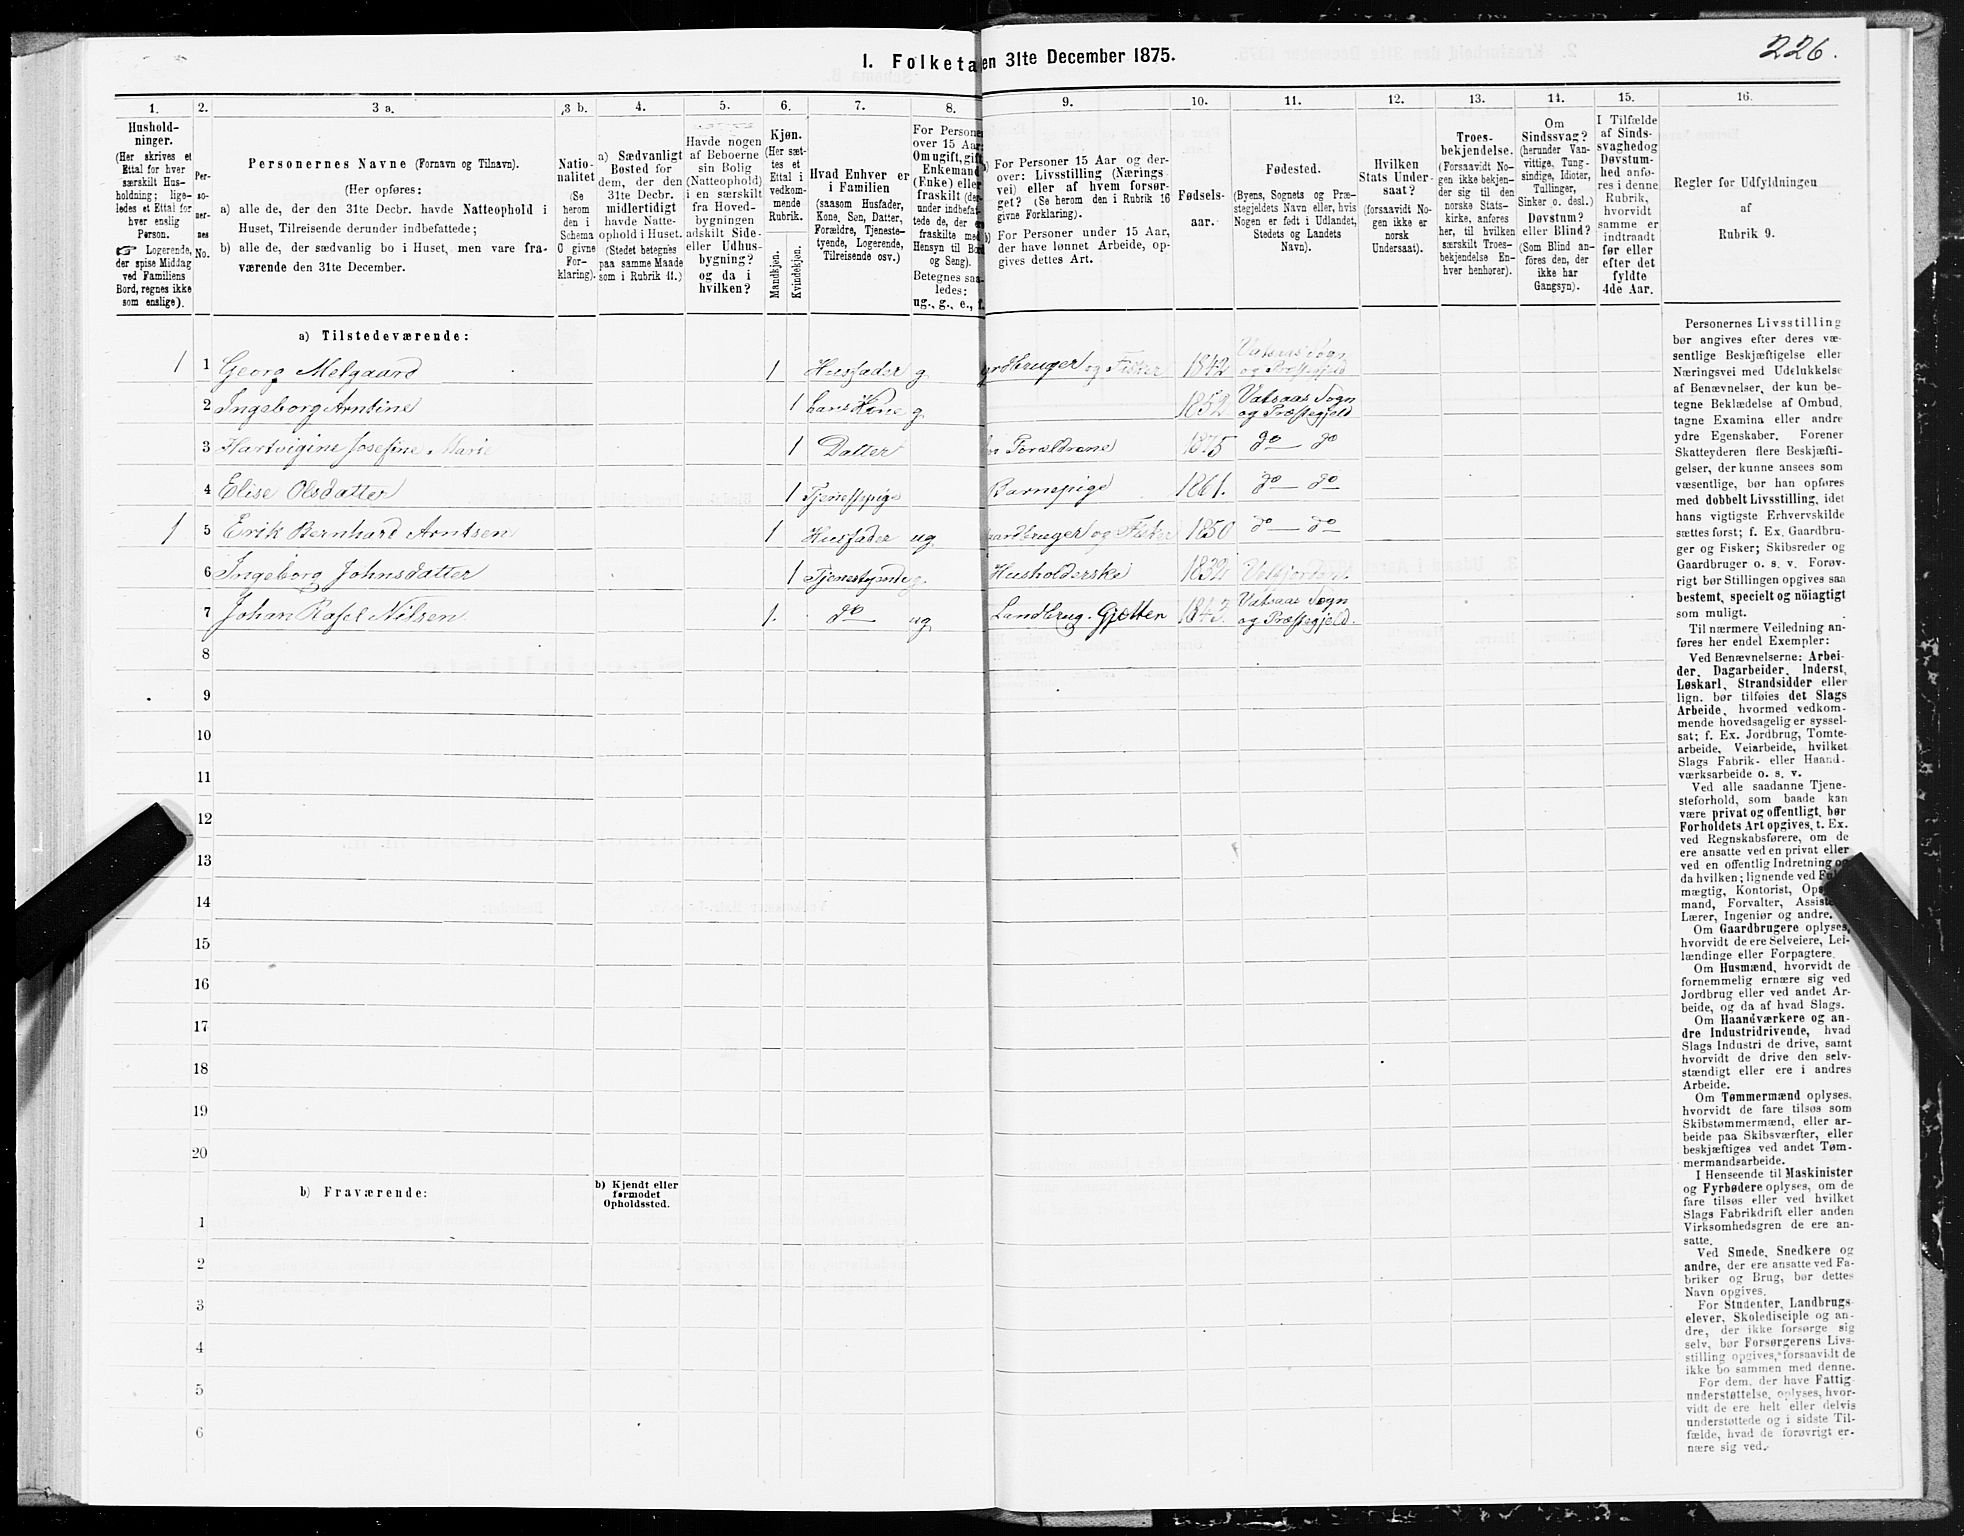 226.
I. Folketa en 31te December 1875.
1. 2. 3 a. 3 b. 4. 5. 6. 7. 8. 9. 10. 11. 12. 13. 14. 15. 16.
Hushold-
ninger.
(Her skrives et
Ettal for hver
særskilt Hus-
holdning; lige-
ledes et Ettal for
hver enslig
Person.
☞ Logerende,
der spise Middag
ved Familiens
Bord, regnes ikke
som enslige).
Per-
so-
ner-
nes
No.
Personernes Navne (Fornavn og Tilnavn).
(Her opføres:
a) alle de, der den 31te Decbr. havde Natteophold i
Huset, Tilreisende derunder indbefattede;
b) alle de, der sædvanlig bo i Huset, men vare fra-
værende den 31te December.
Natio-
nalitet
(Se
herom
den i
Schema
C givne
For-
klaring).
a) Sædvanligt
Bosted for
dem, der den
31te Decbr.
midlertidigt
havde Natte-
ophold i Huset.
(Stedet betegnes
paa samme Maade
som i Rubrik 11.)
Havde nogen
af Beboerne
sin Bolig
(Natteophold)
i en særskilt
fra Hoved-
bygningen
adskilt Side-
eller Udhus-
bygning?
og da i
hvilken?
Kjøn.
(Her sæt-
tes et
Ettal i
vedkom-
mende
Rubrik.
Mandkjøn.
Kvindekjøn.
Hvad Enhver er
i Familien
(saasom Husfader,
Kone, Søn, Datter,
Forældre, Tjeneste-
tyende, Logerende,
Tilreisende osv.)
For Personer
over 15 Aar:
Om ugift, gift,
Enkemand
(Enke) eller
fraskilt (der-
under indbefat-
tede de, der ere
fraskilte med
Hensyn til Bord
og Seng).
Betegnes saa-
ledes:
ug., g., e., f.
a) For Personer 15 Aar og der-
over: Livsstilling (Nærings-
vei) eller af hvem forsør-
get? (Se herom den i Rubrik 16
givne Forklaring).
b) For Personer under 15 Aar,
der have lønnet Arbeide, op-
gives dettes Art.
Fødsels-
aar.
Fødested.
(Byens, Sognets og Præ-
stegjeldets Navn eller, hvis
Nogen er født i Udlandet,
Stedets og Landets
Navn).
Hvilken
Stats Under-
saat?
(forsaavidt No-
gen ikke er
norsk
Undersaat).
Troes-
bekjendelse.
(Forsaavidt No-
gen ikke bekjen-
der sig til den
norske Stats-
kirke, anføres
her, til hvilken
særskilt Troes-
bekjendelse En-
hver henhører).
Om
Sindssvag?
(herunder Van-
vittige, Tung-
sindige, Idioter,
Tullinger,
Sinker o. desl.)
Døvstum?
eller Blind?
(Som Blind an-
føres den, der
ikke har
Gangsyn).
I Tilfælde
af Sinds-
svaghed og
Døvstum-
hed anfø-
res i denne
Rubrik,
hvorvidt
samme er
indtraadt
før eller
efter det
fyldte
4de Aar.
Regler for Udfyldningen
af
Rubrik 9.
a) Tilstedeværende:
1 1 Georg Melgaard 1 Husfader g og Fisker 1842 Vatsaas Sogn og Præstegjeld
2 Ingeborg Arntine 1 hans Kone g 1852 Vatsaas Sogn og Præstegjeld
3 Hartvigine Josefine Marie 1 Datter Forældrene 1875 do — do
4 Elise Olsdatter 1 Tjenestepige Barnepige 1861. do — do
1 5 Erik Bernhard Arntsen 1 Husfader ug aardbruger og Fisker 1850 do — do
6 Ingeborg Johnsdatter 1 Tjenestetyende Husholderske 1832
7 Johan Rafel Nilsen 1. do ug Landbrug. Gjetten 1843. Vatsaas Sogn og Præstegjeld.
8
9
10
11
12
13
14
15
16
17
18
19
20
b) Fraværende:
b) Kjendt eller
formodet
Opholdssted.
1
2
3
4
5
6
Personernes Livsstilling
bør angives efter deres væ-
sentlige Beskjæftigelse eller
Næringsvei med Udelukkelse
af Benævnelser, der kun be-
tegne Beklædelse af Ombud,
tagne Examina eller andre
ydre Egenskaber. Forener
Skatteyderen flere Beskjæfti-
gelser, der kunne ansees som
væsentlige, bør han opføres
med dobbelt Livsstilling, idet
hans vigtigste Erhvervskilde
sættes først; f. Ex. Gaardbru-
ger og Fisker; Skibsreder og
Gaardbruger o. s. v. Forøv-
rigt bør Stillingen opgives saa
bestemt, specielt og nöiagtigt
som muligt.
Til nærmere Veiledning an-
føres her endel Exempler:
Ved Benævnelserne: Arbei-
der, Dagarbeider, Inderst,
Løskarl, Strandsidder eller
lign. bør tilføies det Slags
Arbeide, hvormed vedkom-
mende hovedsagelig er syssel-
sat; f. Ex. Jordbrug, Tomte-
arbeide, Veiarbeide, hvilket
Slags Fabrik- eller Haand-
værksarbeide o. s. v.
Ved alle saadanne Tjene-
steforhold, som baade kan
være privat og offentligt, bør
Forholdets Art opgives, t. Ex.
ved Regnskabsførere, om de
ere ansatte ved en privat eller
ved en offentlig Indretning og
da hvilken; lignende ved
mægtig, Kontorist,
mand, Forvalter,
Lærer, Ingeniør og andre.
Om Gaardbrugere oplyses,
hvorvidt de ere Selveiere, Lei-
lændinge eller Forpagtere.
Om Husmænd, hvorvidt de
fornemmelig ernære sig ved
Jordbrug eller ved andet Ar-
beide, og da af hvad Slags.
Om Haandværkere og an-
dre Industridrivende, hvad
Slags Industri de drive, samt
hvorvidt de drive den selv-
stændigt eller ere i andres
Arbeide.
Om Tømmermænd oplyses,
hvorvidt de fare tilsøs som
Skibstømmermænd, eller ar-
beide paa Skibsværfter, eller
beskjæftiges ved andet Tøm-
mermandsarbeide.
I Henseende til Maskinister
og Fyrbødere oplyses, om de
fare tilsøs eller ved hvilket
Slags Fabrikdrift eller anden
Virksomhedsgren de ere an-
satte.
Ved Smede, Snedkere og
andre, der ere ansatte ved Fa-
briker og Brug, bør dettes
Navn opgives.
For Studenter, Landbrugs-
elever, Skoledisciple og an-
dre, der ikke forsørge sig
selv, bør Forsørgerens Livs-
stilling opgives, forsaavidt de
ikke bo sammen med denne.
For dem, der have Fattig-
understøttelse, oplyses, hvor-
vidt de ere helt eller delvis
understøttede og i sidste Til-
fælde, hvad de forøvrigt er-
nære sig ved.